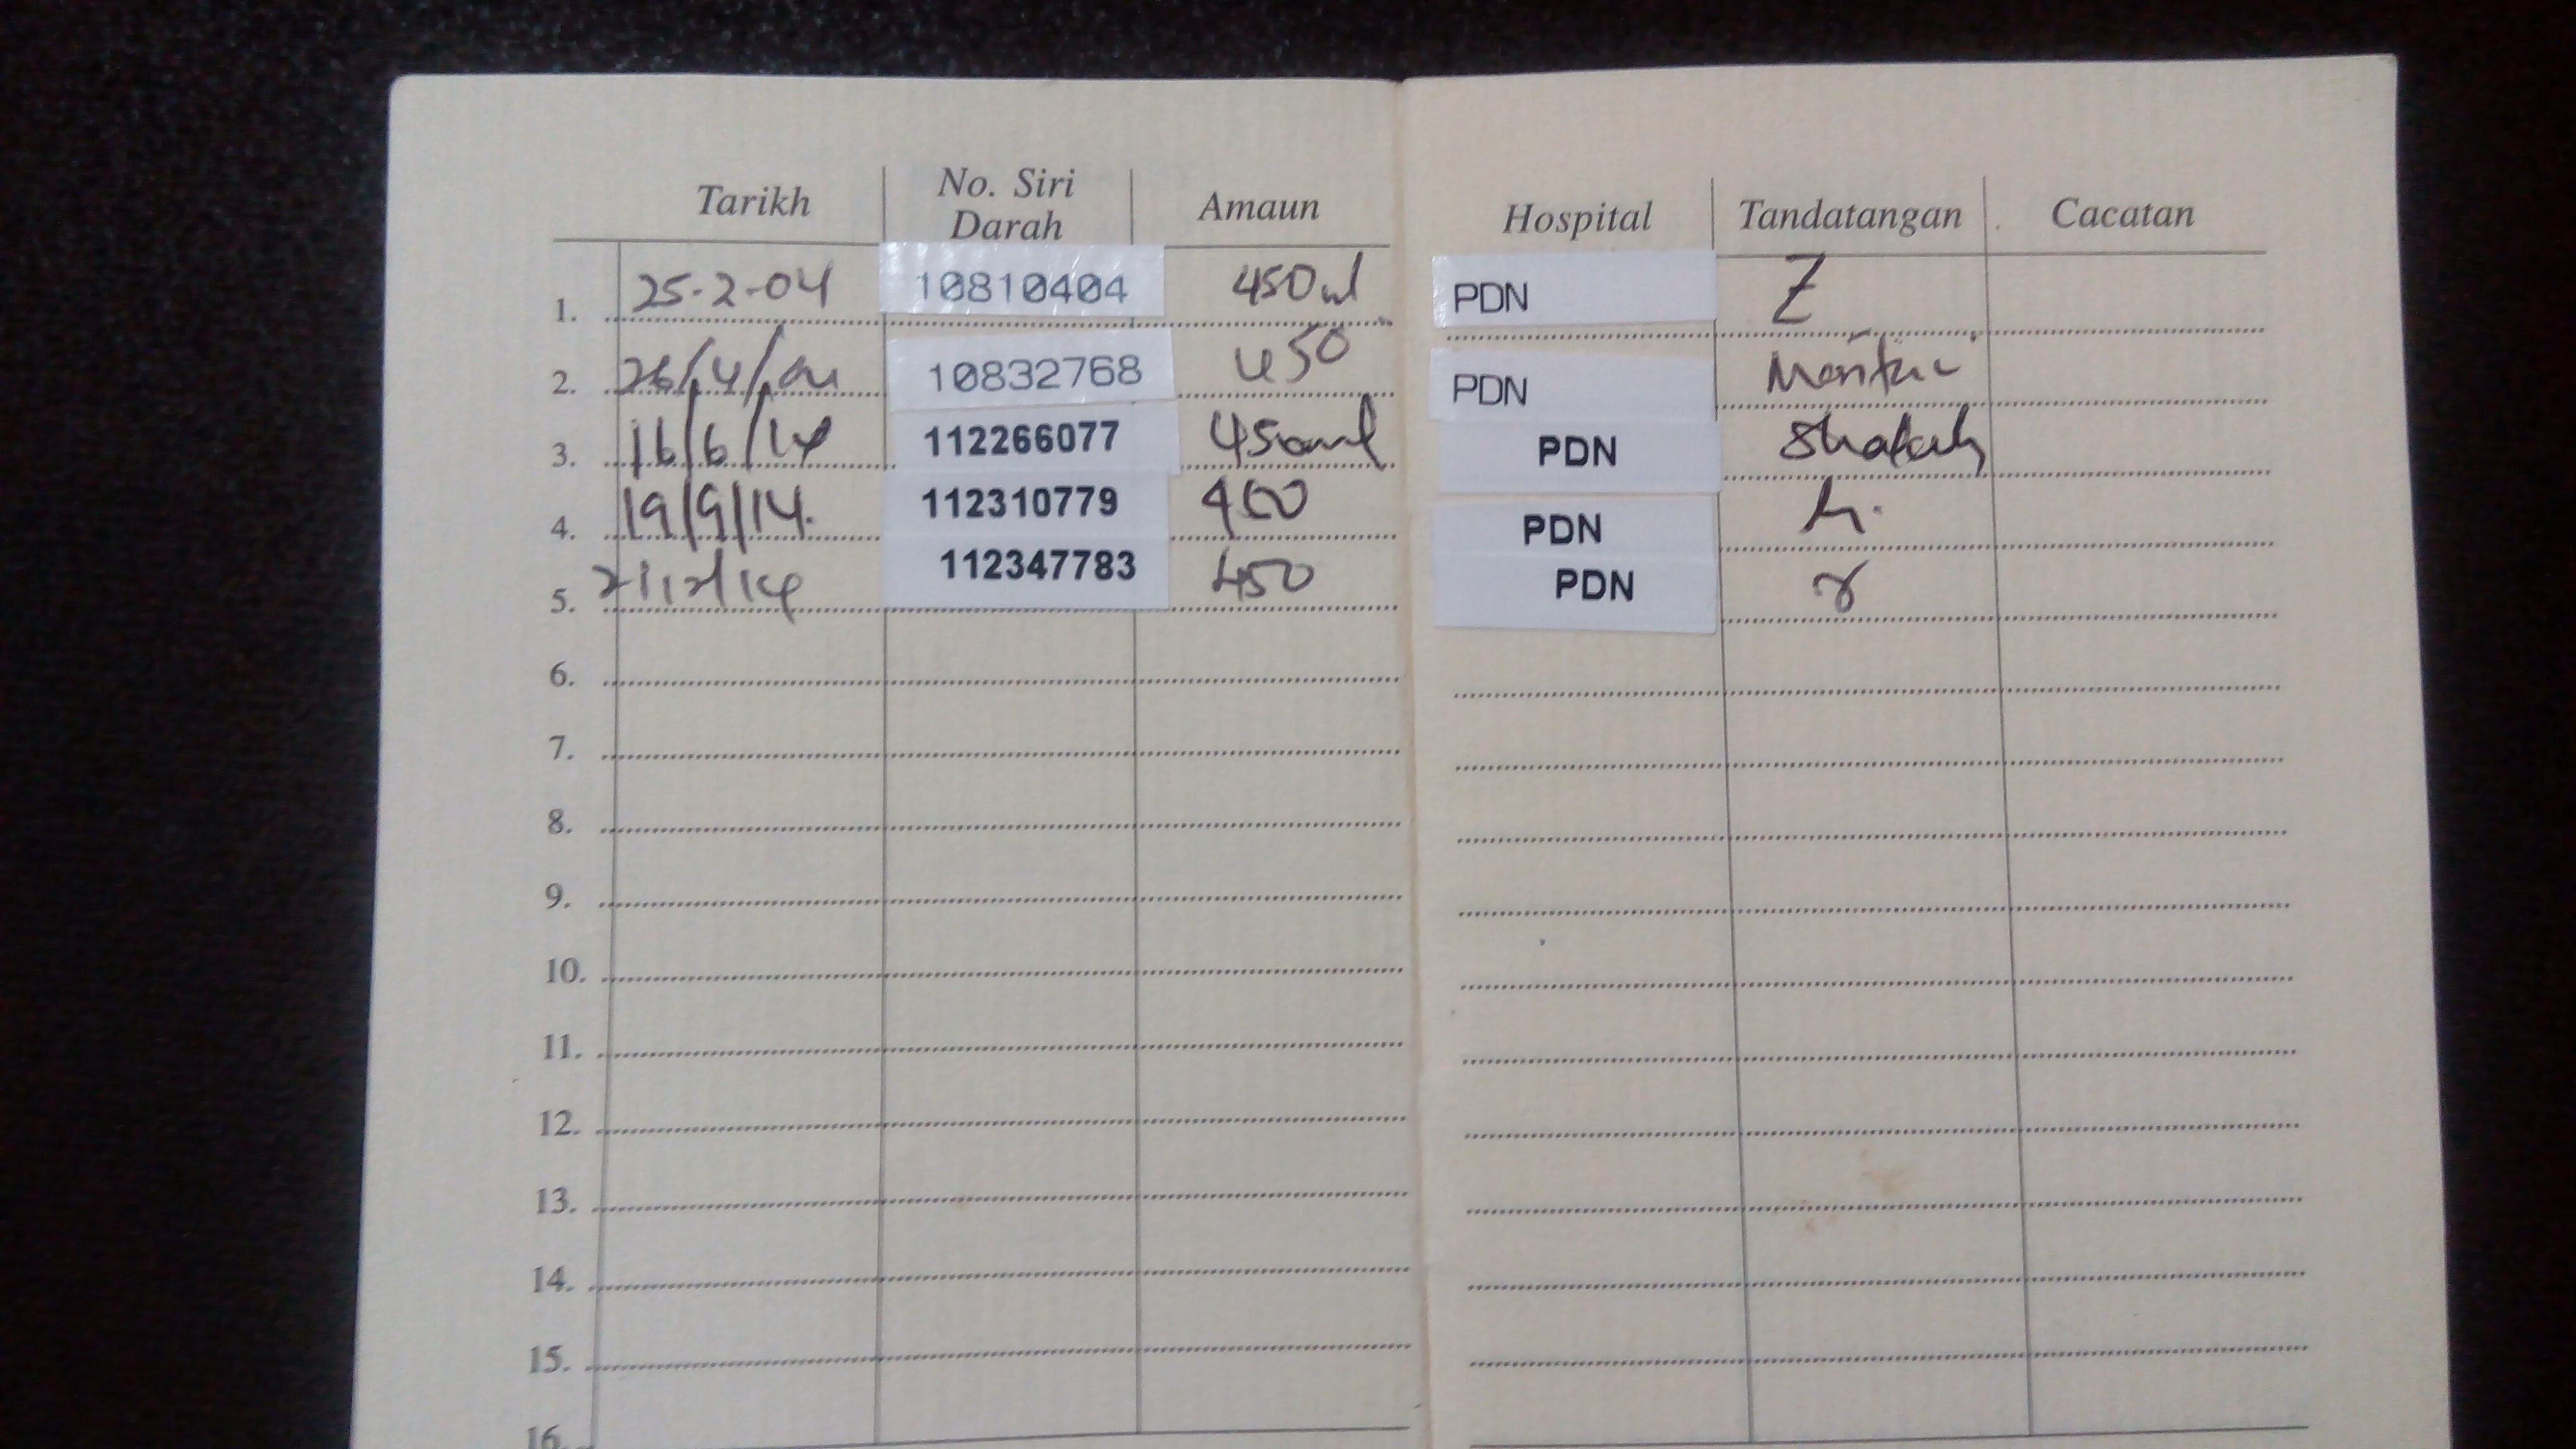 Tarikh No. Siri Darah Amaun Hospital Tandatangan Cacatan
1. 25-2-04 10810404 450ml PDN Z
2. 26/4/04 10832768 450 PDN
3. 16/6/14 112266077 450ml PDN
4. 19/9/14. 112310779 450 PDN
5. 112347783 450 PDN
6.
7.
8.
9.
10.
11.
12.
13.
14.
15.
16.